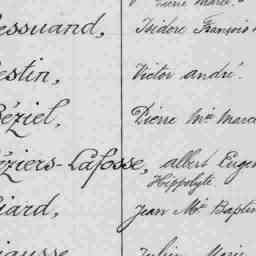 Pierre Marie.
essuand, Isidore François
estin, Victor andré.
éziel, Pierre Mie Marce
éziers-Lafosse, albert Euge
Hippolyte.
iard, Jean Mie Baptis
Julien Marie